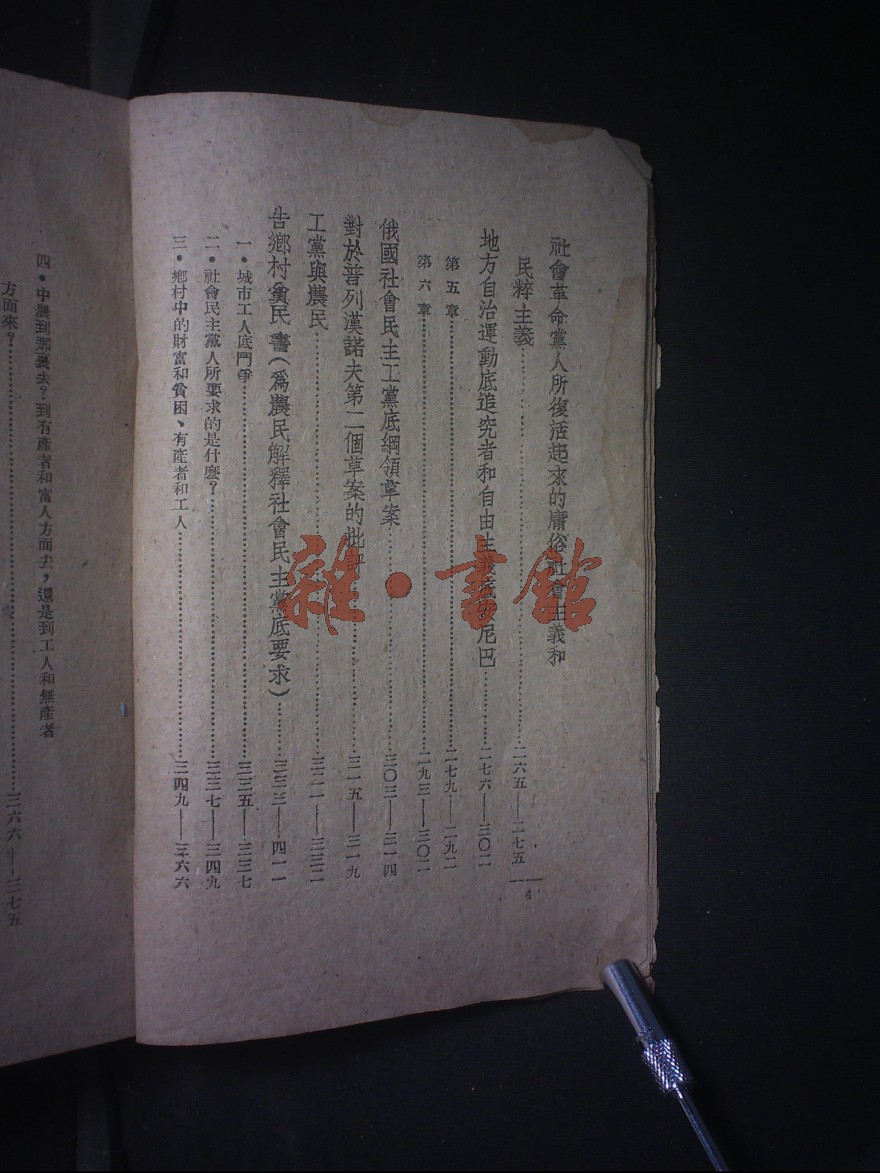 社會革命黨人所復活起來的庸俗社會主義和
民粹主義……二六五——二七五
地方自治運動底追究者和自由主義底漢尼巴……二七六——三〇二
第五章……二七九——二九二
第六章……二九三——三〇二
俄國社會民主工黨底綱領草案……三〇三——三一四
對於普列漢諾夫第二個草案的批評……三一五——三一九
工黨與農民……三二一——三三二
告鄉村貧民書(爲農民解釋社會民主黨底要求)……三三三——四一一
一·城市工人底鬥爭……三三五——三三七
二·社會民主黨人所要求的是什麽?……三三七——三四九
三·鄉村中的財富和貧困、有產者和工人……三四九——三六六
4
四·中農到那裏去?到有產者和富人方面去,還是到工人和無產者
方面來?……三六六——三七五
雜·書館